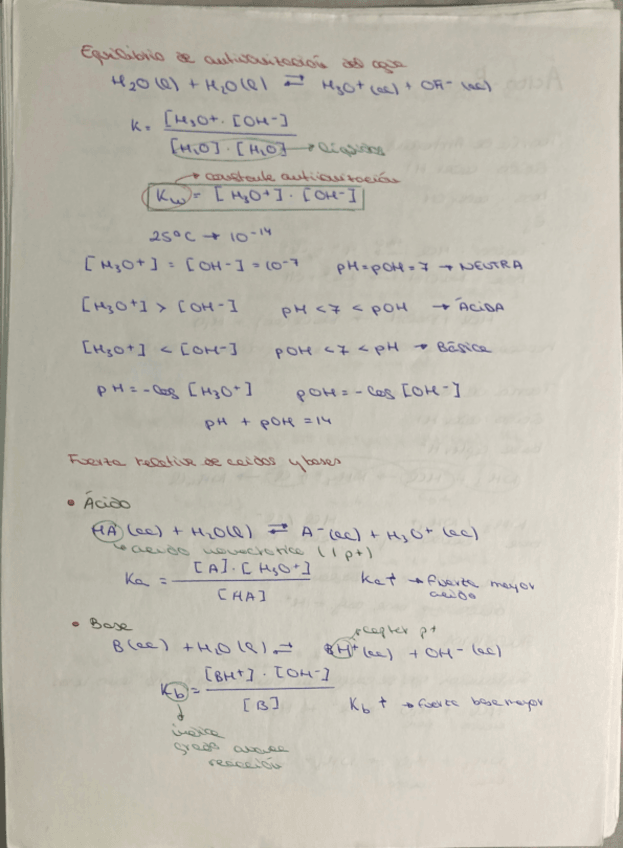 Equilibrio de autoionización del agua
H₂O(l) + H₂O(l) ⇄ H₃O⁺(ac) + OH⁻(ac)
K = [H₃O⁺ · [OH⁻] / [H₂O] · [H₂O] → líquidos
→ constante autoionización
Kw = [H₃O⁺] · [OH⁻]
25°C → 10⁻¹⁴
[H₃O⁺] = [OH⁻] = 10⁻⁷ pH = pOH = 7 → NEUTRA
[H₃O⁺] > [OH⁻] pH < 7 < pOH → ÁCIDA
[H₃O⁺] < [OH⁻] pOH < 7 < pH → Básica
pH = -log [H₃O⁺] pOH = -log [OH⁻]
pH + pOH = 14
Fuerza relativa de ácidos y bases
• Ácido
HA(ac) + H₂O(l) ⇄ A⁻(ac) + H₃O⁺(ac)
↳ ácido monoprótico (1 p+)
Ka = [A] · [H₃O⁺] / [HA] Ka ↑ → fuerza mayor
ácido
• Base
→ receptor p+
B(ac) + H₂O(l) ⇄ BH⁺(ac) + OH⁻(ac)
Kb = [BH⁺] · [OH⁻] / [B] Kb ↑ → fuerza base mayor
↓
indica
grado avance
reacción